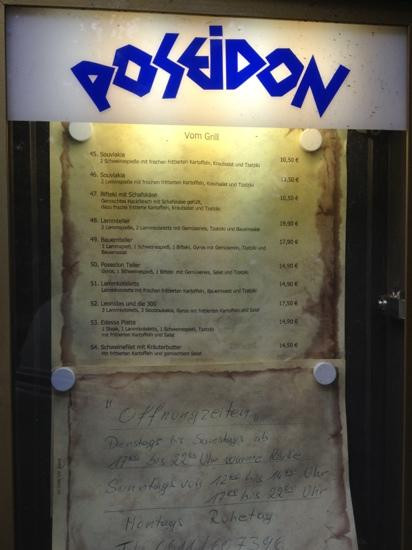 POSEIDON
Vom Grill
45. Souvlakia 10,50 €
2 Schweinespieße mit frischen frittierten Kartoffeln, Krautsalat und Tzatziki
46. Souvlakia 13,50 €
2 Lammspieße mit frischen frittierten Kartoffeln, Krautsalat und Tzatziki
47. Bifteki mit Schafskäse 10,50 €
Gemischtes Hackfleisch mit Schafskäse gefüllt,
dazu frische frittierte Kartoffeln, Krautsalat und Tzatziki
48. Lammteller 19,90 €
2 Lammspieße, 2 Lammkoteletts mit Gemüsereis, Tzatziki und Bauernsalat
49. Bauernteller 17,90 €
1 Lammspieß, 1 Schweinespieß, 1 Bifteki, Gyros mit Gemüsereis, Tzatziki und
Bauernsalat
50. Poseidon Teller 14,90 €
Gyros, 1 Schweinespieß, 1 Bifteki mit Gemüsereis, Salat und Tzatziki
51. Lammkoteletts 14,90 €
Lammkoteletts mit frischen frittierten Kartoffeln, Bauernsalat und Tzatziki
52. Leonidas und die 300 17,50 €
3 Lammkoteletts, 3 Souvlakia, Gyros mit frittierten Kartoffeln und Salat
53. Edessa Platte 14,90 €
1 Steak, 1 Lammkoteletts, 1 Schweinespieß, Tzatziki
mit frittierten Kartoffeln und Salat
54. Schweinefilet mit Kräuterbutter 14,50 €
mit frittierten Kartoffeln und gemischtem Salat
"Öffnungszeiten"
Dienstags bis Samstags ab
17 00 bis 22 00 Uhr warme Küche
Sonntags von 12 00 bis 14 00 Uhr
17 00 bis 22 00 Uhr
Montags Ruhetag